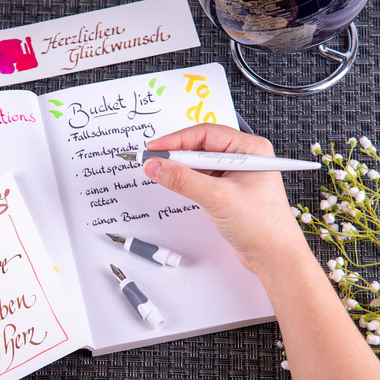 Herzlichen
Glückwunsch
Bucket List
To
do
• Fallschirmsprung
• Fremdsprache
• Blutspenden
• einen Hund
retten
• einen Baum pflanzen
herz